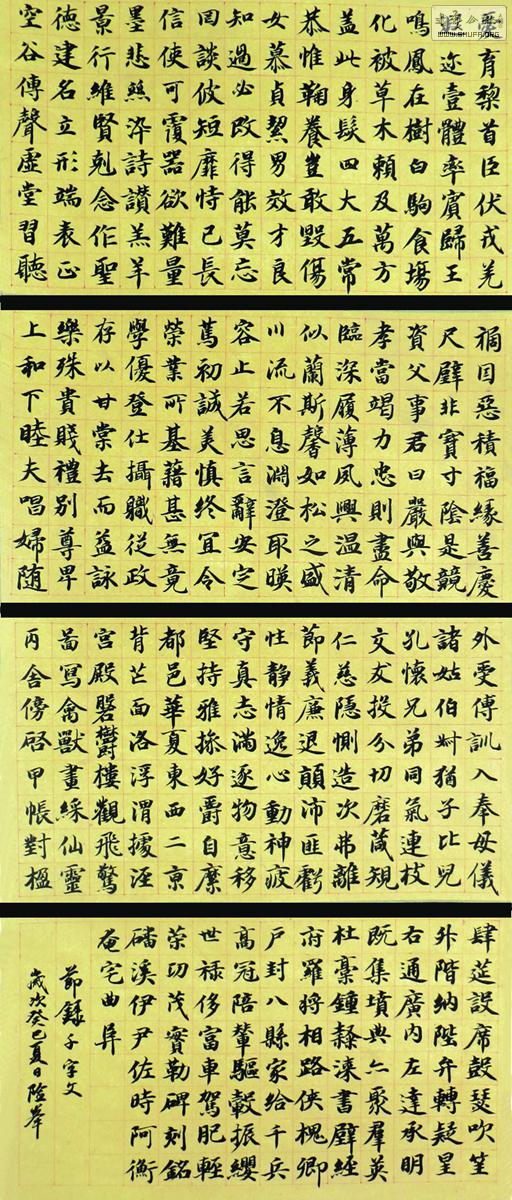 愛育黎首臣伏戎羌
迩壹體率賓歸王
鳴鳳在樹白駒食場
化被草木賴及萬方
蓋此身髮四大五常
恭惟鞠養豈敢毀傷
女慕貞絜男效才良
知過必改得能莫忘
罔談彼短靡恃己長
信使可覆器欲難量
墨悲絲染詩讚羔羊
景行維賢剋念作聖
德建名立形端表正
空谷傳聲虛堂習聽
禍因惡積福緣善慶
尺璧非寶寸陰是競
資父事君曰嚴與敬
孝當竭力忠則盡命
臨深履薄夙興温清
似蘭斯馨如松之盛
川流不息淵澄取暎
容止若思言辭安定
篤初誠美慎終宜令
榮業所基藉甚無竟
學優登仕攝職從政
存以甘棠去而益詠
樂殊貴賤禮別尊卑
上和下睦夫唱婦随
外受傅訓入奉母儀
諸姑伯叔猶子比兒
孔懷兄弟同氣連枝
交友投分切磨箴規
仁慈隱惻造次弗離
節義廉退顛沛匪虧
性静情逸心動神疲
守真志滿逐物意移
堅持雅操好爵自縻
都邑華夏東西二京
背芒面洛浮渭據涇
宮殿磐鬱樓觀飛驚
圖寫禽獸畫綵仙靈
丙舍傍啓甲帳對楹
肆筵設席鼓瑟吹笙
升階納陛弁轉疑星
右通廣内左達承明
既集墳典亦聚羣英
杜稾鍾隸漆書壁經
府羅將相路俠槐卿
户封八縣家給千兵
高冠陪輦驅轂振纓
世禄侈富車駕肥輕
策功茂實勒碑刻銘
磻溪伊尹佐時阿衡
奄宅曲阜
節錄千字文
歲次癸巳夏日